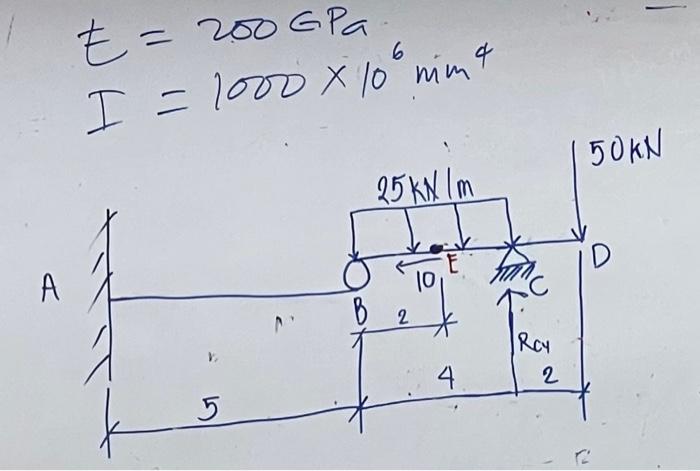 E = 200 GPa
I = 1000 × 10⁶ mm⁴
50KN
25KN/m
A
B
10
E
C
D
2
Rcy
4
2
5